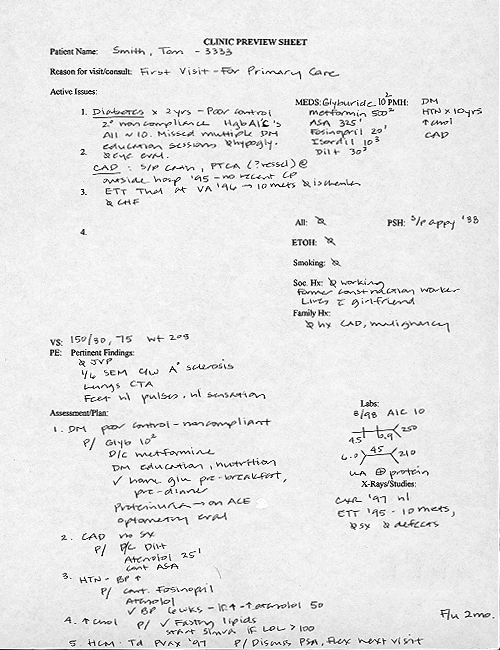 CLINIC PREVIEW SHEET
Patient Name: Smith, Tom - 3333
Reason for visit/consult: First Visit - For Primary Care
Active Issues:
1. Diabetes x 2yrs - Poor control
2° noncompliance HgbA1C's
All ~ 10. Missed multiple DM
education sessions Ø hypogly.
Ø eye eval.
2.
CAD: s/p Cath, PTCA (?vessel) @
outside hosp '95 - no recent CP
3. ETT Thal at VA '96 → 10 mets Ø ischemia
Ø CHF
4.
MEDS: Glyburide 10²
metformin 500²
ASA 325'
Fosinopril 20'
Isordil 10³
Dilt 30³
PMH: DM
HTN x 10yrs
↑chol
CAD
All: Ø
PSH: s/p appy '88
ETOH: Ø
Smoking: Ø
Soc. Hx: Ø working
Former construction worker
Lives c̄ girlfriend
Family Hx:
Ø hx CAD, malignancy
VS: 150/80, 75 wt 205
PE: Pertinent Findings:
Ø JVP
1/6 SEM c/w A° sclerosis
Lungs CTA
Feet nl pulses, nl sensation
Assessment/Plan:
1. DM poor control - noncompliant
P/ Glyb 10²
D/c metformine
DM education, nutrition
✓ home glu pre-breakfast,
pre-dinner
Proteinuria → on ACE
optometry eval
2. CAD no sx
P/ D/c Dilt
Atenolol 25'
cont ASA
3. HTN - BP ↑
P/ cont. Fosinopril
Atenolol
✓ BP 6wks - if ↑ → ↑atenolol 50
4. ↑chol P/ ✓ Fasting lipids
start Simva if LDL > 100
5. HCM - Td Pvax '97 P/ Discuss PSA, Flex next visit
Labs:
8/98 A1C 10
45 6.9 250
6.0 45 210
UA ⊕ protein
X-Rays/Studies:
CXR '97 nl
ETT '95 - 10 mets,
Ø sx Ø defects
F/u 2mo.